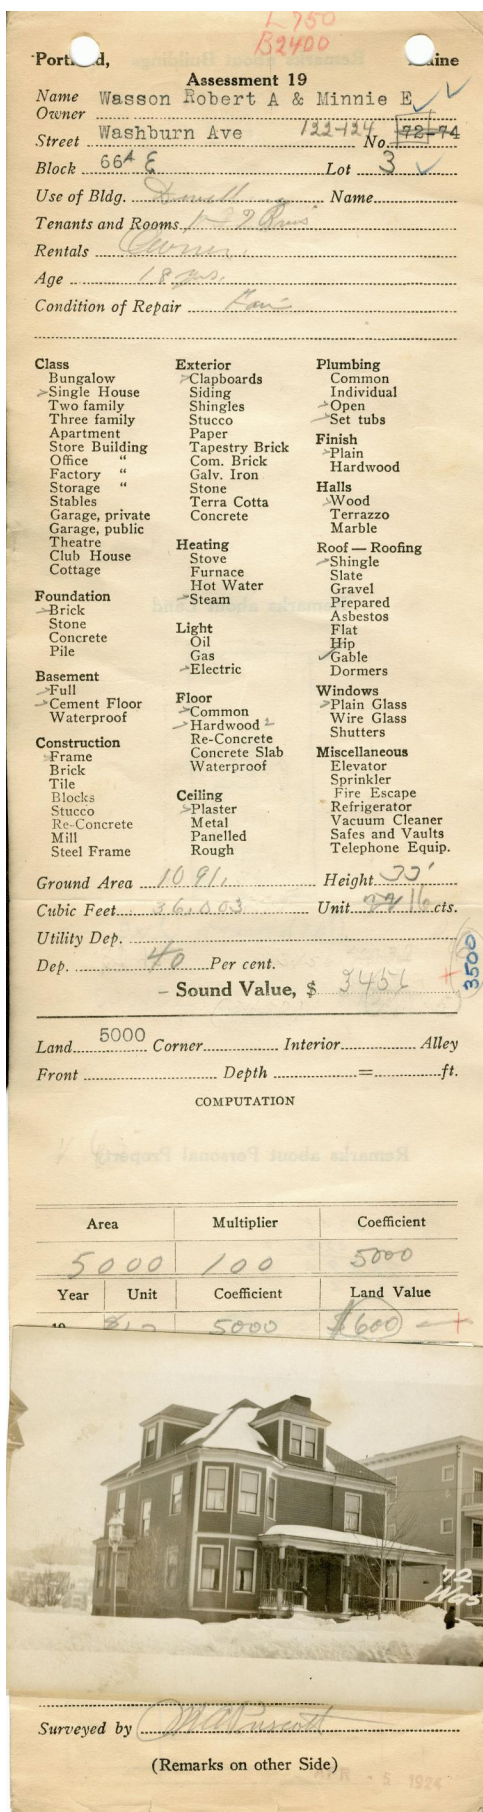 L 750
B 2400
Portland, Maine
Assessment 19
Name Wasson Robert A & Minnie E
Owner
Street Washburn Ave 122-124 No. 72-74
Block 66A E Lot 3
Use of Bldg. Dwell Name
Tenants and Rooms 1- 9 Rms
Rentals Owner.
Age 18 yrs.
Condition of Repair Fair
Class
Bungalow
Single House
Two family
Three family
Apartment
Store Building
Office "
Factory "
Storage "
Stables
Garage, private
Garage, public
Theatre
Club House
Cottage
Foundation
Brick
Stone
Concrete
Pile
Basement
Full
Cement Floor
Waterproof
Construction
Frame
Brick
Tile
Blocks
Stucco
Re-Concrete
Mill
Steel Frame
Exterior
Clapboards
Siding
Shingles
Stucco
Paper
Tapestry Brick
Com. Brick
Galv. Iron
Stone
Terra Cotta
Concrete
Heating
Stove
Furnace
Hot Water
Steam
Light
Oil
Gas
Electric
Floor
Common
Hardwood 2
Re-Concrete
Concrete Slab
Waterproof
Ceiling
Plaster
Metal
Panelled
Rough
Plumbing
Common
Individual
Open
Set tubs
Finish
Plain
Hardwood
Halls
Wood
Terrazzo
Marble
Roof — Roofing
Shingle
Slate
Gravel
Prepared
Asbestos
Flat
Hip
Gable
Dormers
Windows
Plain Glass
Wire Glass
Shutters
Miscellaneous
Elevator
Sprinkler
Fire Escape
Refrigerator
Vacuum Cleaner
Safes and Vaults
Telephone Equip.
Ground Area 1091. Height 33'
Cubic Feet 36,003 Unit 16 cts.
Utility Dep.
Dep. 40 Per cent.
Sound Value, $ 3456
3500
Land 5000 Corner Interior Alley
Front Depth = ft.
COMPUTATION
Area Multiplier Coefficient
5000 100 5000
Year Unit Coefficient Land Value
19 5000 $600
72
Was
Surveyed by
(Remarks on other Side)
APR - 5 1924